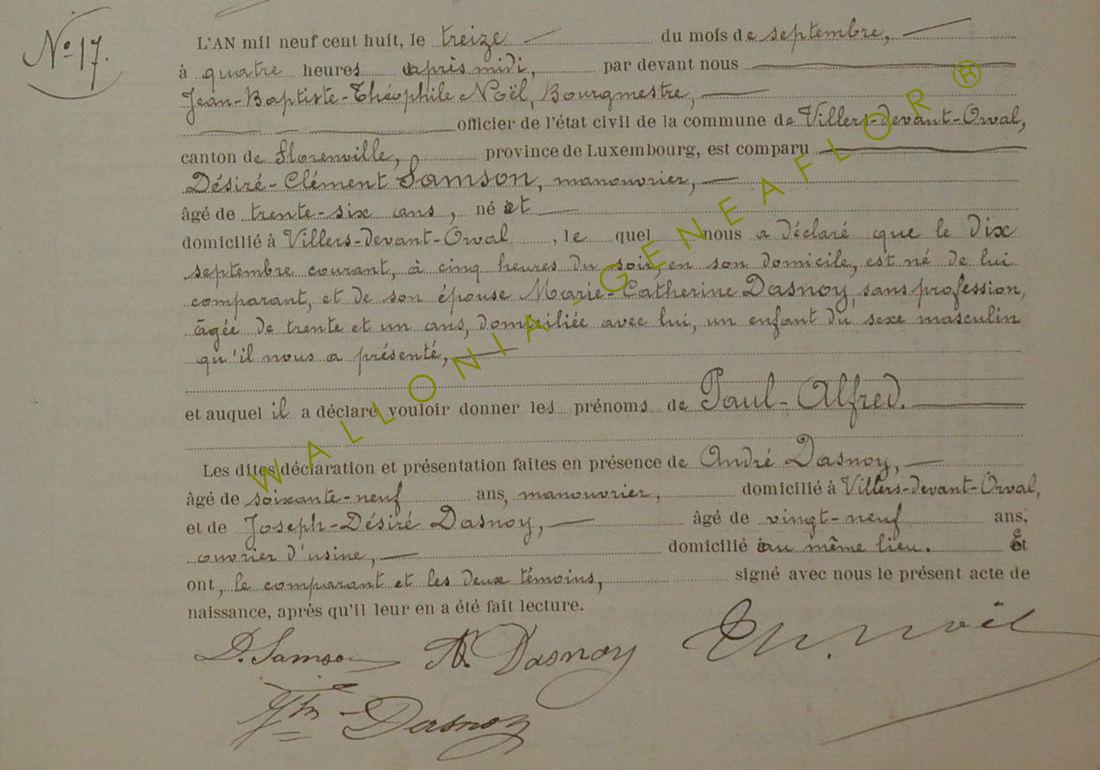 N° 17.
L'AN mil neuf cent huit, le treize du mois de septembre,
à quatre heures après midi, par devant nous
Jean-Baptiste-Théophile Noël, Bourgmestre,
officier de l'état civil de la commune de Villers-devant-Orval,
canton de Florenville, province de Luxembourg, est comparu
Désiré-Clément Samson, manouvrier,
âgé de trente-six ans, né et
domicilié à Villers-devant-Orval, le quel nous a déclaré que le dix
septembre courant, à cinq heures du soir, en son domicile, est né de lui
comparant, et de son épouse Marie-Catherine Dasnoy, sans profession,
âgée de trente et un ans, domiciliée avec lui, un enfant du sexe masculin
qu'il nous a présenté,
et auquel il a déclaré vouloir donner les prénoms de Paul-Alfred.
Les dites déclaration et présentation faites en présence de André Dasnoy,
âgé de soixante-neuf ans, manouvrier, domicilié à Villers-devant-Orval,
et de Joseph-Désiré Dasnoy, âgé de vingt-neuf ans,
ouvrier d'usine, domicilié au même lieu. Et
ont, le comparant et les deux témoins, signé avec nous le présent acte de
naissance, après qu'il leur en a été fait lecture.
D. Samson A Dasnoy Th. Noël
Jph Dasnoy
WALLONIA GENEAFLOR ®